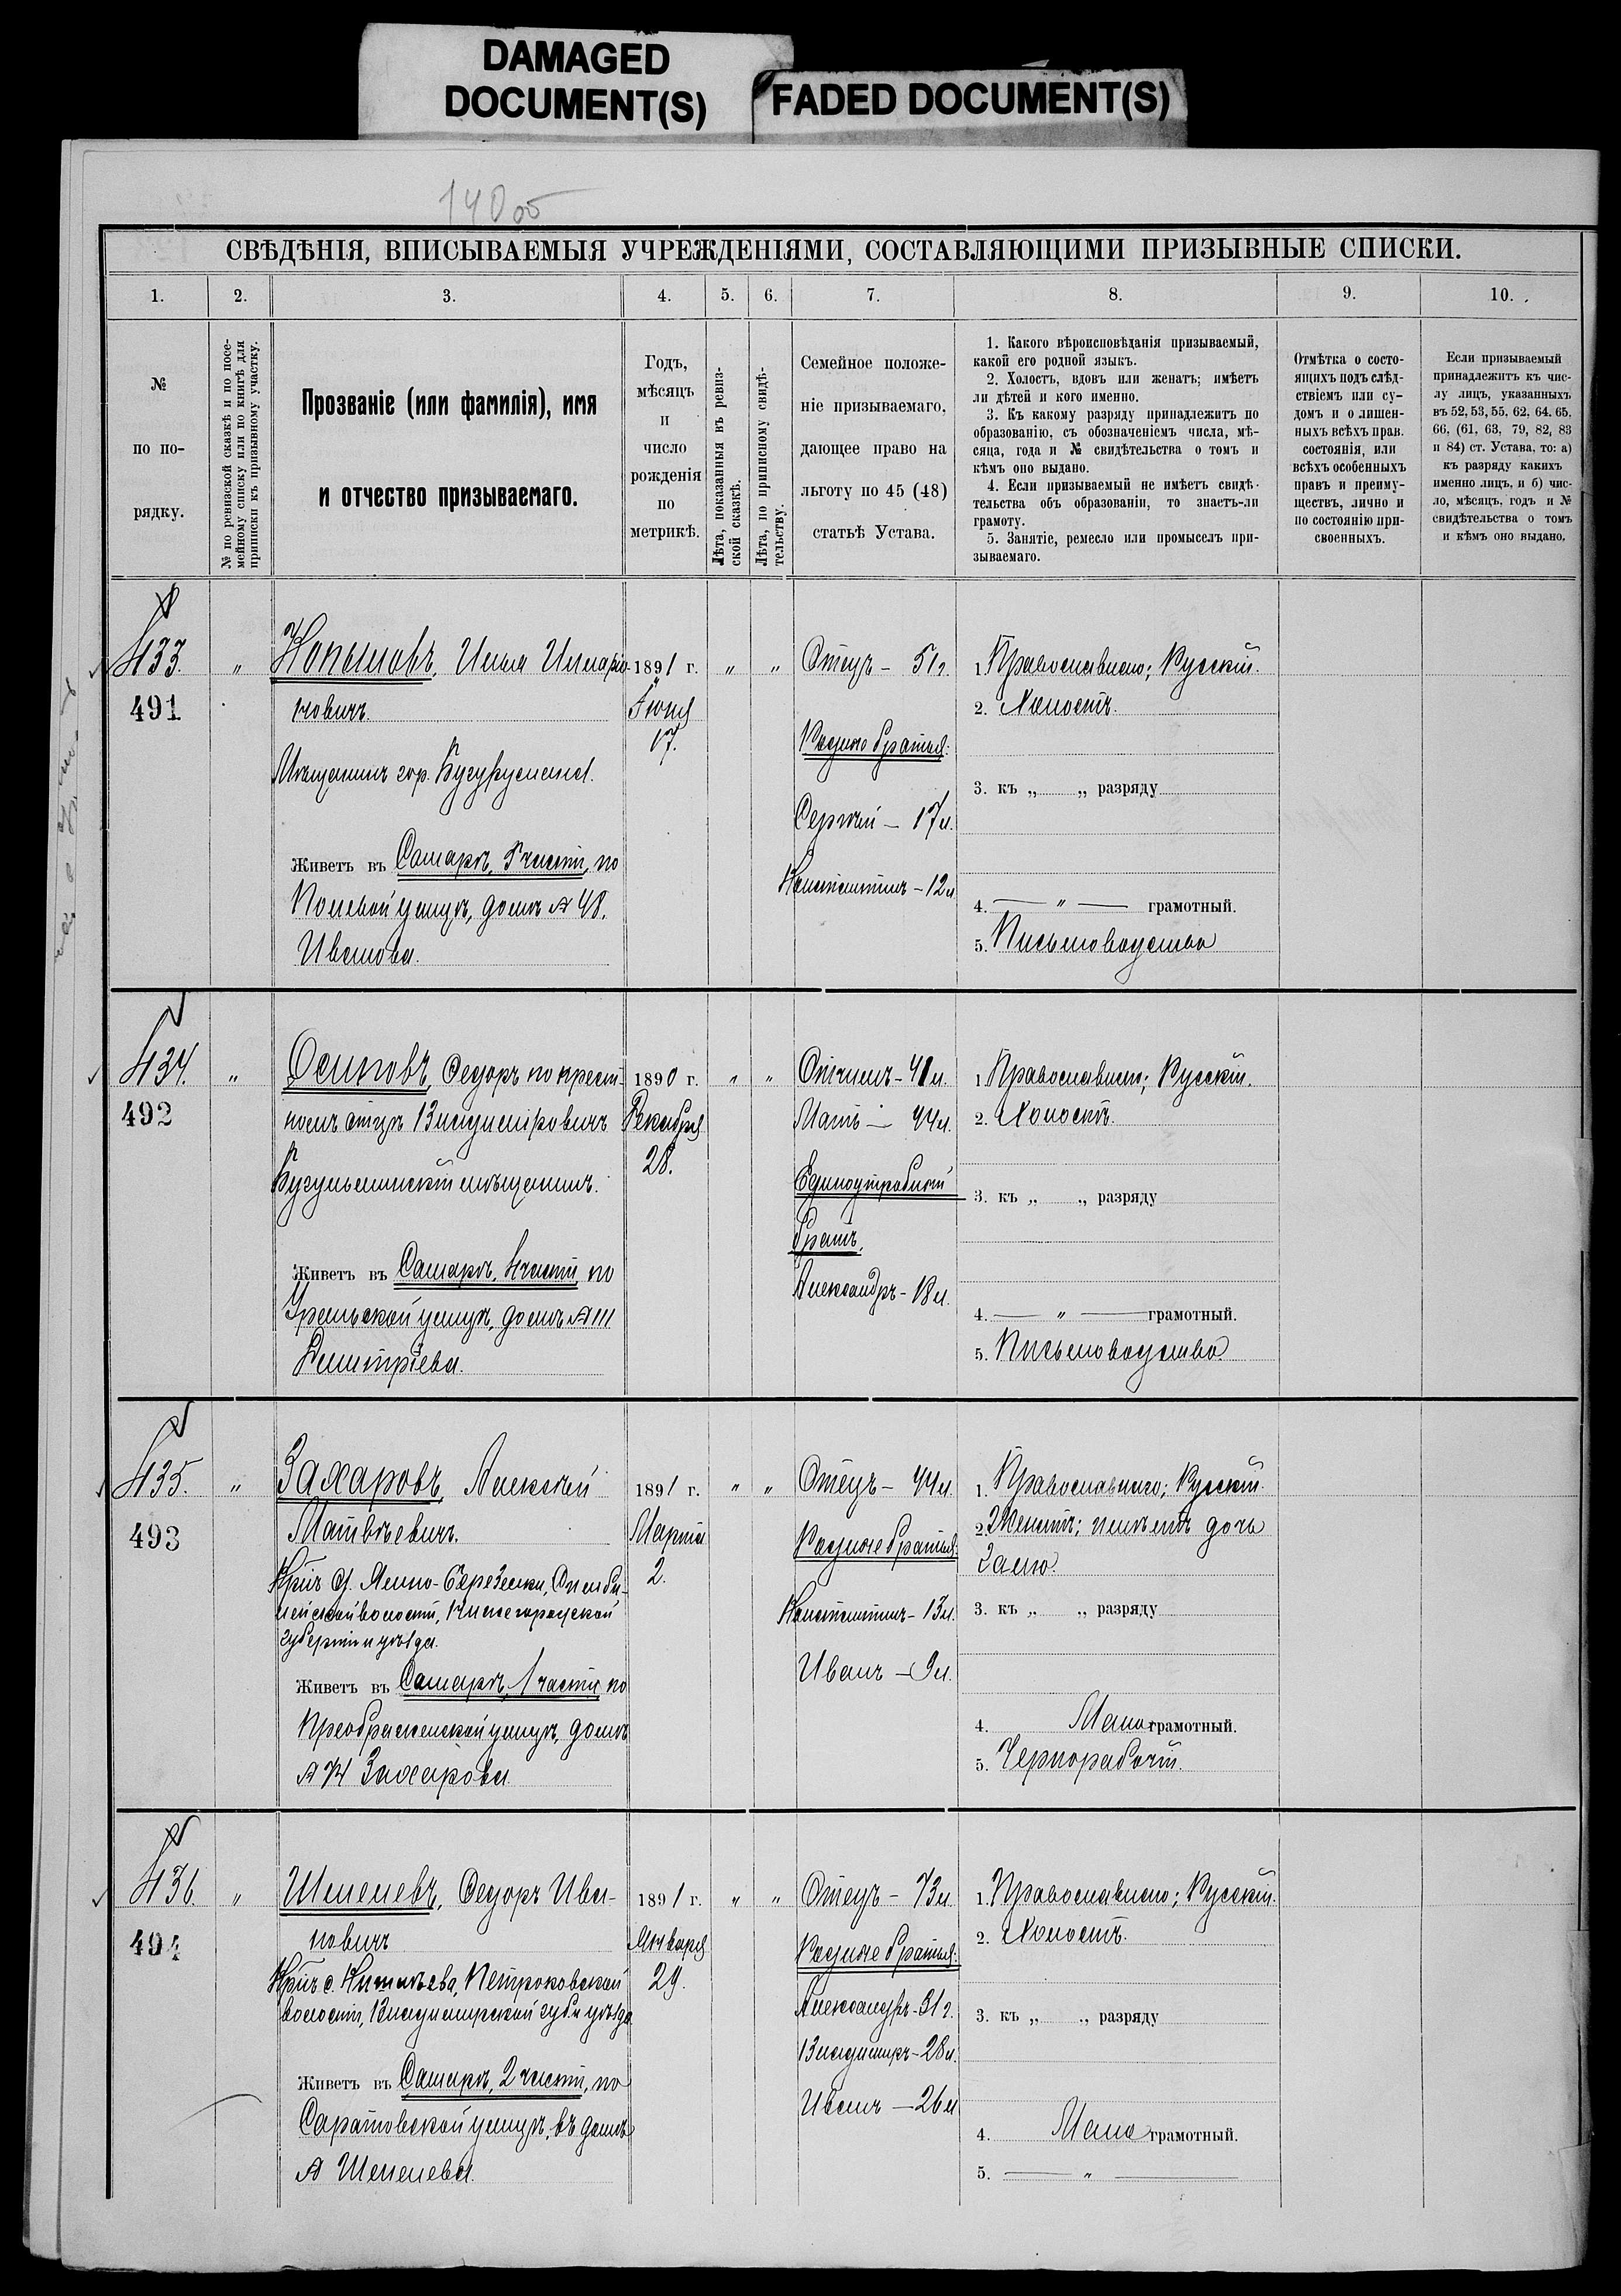 DAMAGED
DOCUMENT(S)
FADED DOCUMENT(S)
СВѢДѢНІЯ, ВПИСЫВАЕМЫЯ УЧРЕЖДЕНІЯМИ, СОСТАВЛЯЮЩИМИ ПРИЗЫВНЫЕ СПИСКИ.
1. 2. 3. 4. 5. 6. 7. 8. 9. 10.
№
по по-
рядку.
№ по ревизской сказкѣ и по посе-
мейному списку или по книгѣ для
приписки къ призывному участку.
Прозваніе (или фамилія), имя
и отчество призываемаго.
Годъ,
мѣсяцъ
и
число
рожденія
по
метрикѣ.
Лѣта, показанныя въ ревиз-
ской сказкѣ.
Лѣта, по приписному свидѣ-
тельству.
Семейное положе-
ніе призываемаго,
дающее право на
льготу по 45 (48)
статьѣ Устава.
1. Какого вѣроисповѣданія призываемый,
какой его родной языкъ.
2. Холостъ, вдовъ или женатъ; имѣетъ
ли дѣтей и кого именно.
3. Къ какому разряду принадлежитъ по
образованію, съ обозначеніемъ числа, мѣ-
сяца, года и № свидѣтельства о томъ и
кѣмъ оно выдано.
4. Если призываемый не имѣетъ свидѣ-
тельства объ образованіи, то знаетъ-ли
грамоту.
5. Занятіе, ремесло или промыселъ при-
зываемаго.
Отмѣтка о состо-
ящихъ подъ слѣд-
ствіемъ или су-
домъ и о лишен-
ныхъ всѣхъ прав.
состоянія, или
всѣхъ особенныхъ
правъ и преиму-
ществъ, лично и
по состоянію при-
своенныхъ.
Если призываемый
принадлежитъ къ чис-
лу лицъ, указанныхъ
въ 52, 53, 55, 62, 64, 65,
66, (61, 63, 79, 82, 83
и 84) ст. Устава, то: а)
къ разряду какихъ
именно лицъ, и б) чис-
ло, мѣсяцъ, годъ и №
свидѣтельства о томъ
и кѣмъ оно выдано.
433.
491
"
Копыловъ, Илья Илларіо-
новичъ.
Мѣщанинъ гор. Бугуруслана.
Живетъ въ Самарѣ, 5 части, по
Полевой улицѣ, домъ № 48.
Иванова.
1891 г.
Іюля
17.
" "
Отецъ - 51 г.
Родные братья:
Сергѣй - 17 л.
Константинъ - 12 л.
1. Православнаго; Русскій.
2. Холостъ.
3. къ „ „ разряду
4. — " — грамотный.
5. Письмоводство
434.
492
"
Осиповъ, Федоръ по крест-
номъ отцѣ Владиміровичъ
Бугульминскій мѣщанинъ.
Живетъ въ Самарѣ, 4 части, по
Уральской улицѣ, домъ № 111
Дмитріева.
1890 г.
Декабря
28.
" "
Отчимъ - 41 л.
Мать - 44 л.
Единоутробный
братъ,
Александръ - 13 л.
1. Православнаго; Русскій.
2. Холостъ.
3. къ „ „ разряду
4. — " — грамотный.
5. Письмоводство.
435.
493
"
Захаровъ, Алексѣй
Матвѣевичъ.
губерніи и уѣзда.
Живетъ въ Самарѣ, 1 части, по
Преображенской улицѣ, домъ
№ 74 Захарова
1891 г.
Марта
2.
" "
Отецъ - 44 л.
Родные братья:
Константинъ - 13 л.
Иванъ - 9 л.
1. Православнаго; Русскій.
2. Женатъ; имѣетъ дочь
3. къ „ „ разряду
4. Мало грамотный.
5. Чернорабочій.
436.
494
"
Шепелевъ, Федоръ Ива-
новичъ
волости, Владимірской губ. и уѣзда
Живетъ въ Самарѣ, 2 части, по
Саратовской улицѣ, въ домѣ
№ Шепелева.
1891 г.
Января
29.
" "
Отецъ - 73 л.
Родные братья:
Александръ - 31 г.
Владиміръ - 28 л.
Иванъ - 26 л.
1. Православнаго; Русскій.
2. Холостъ.
3. къ „ „ разряду
4. Мало грамотный.
5. — " —